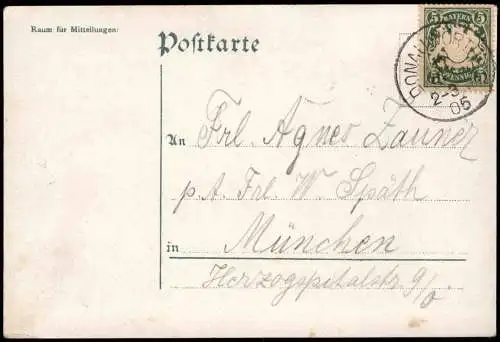 Raum für Mitteilungen:
Postkarte
5 BAYERN 5
5 PFENNIG 5
DONAUWÖRTH
2-3
05
An Frl Agnes Zauner
p. A. Frl. W. Späth
in München
Herzogspitalstr. 9/0